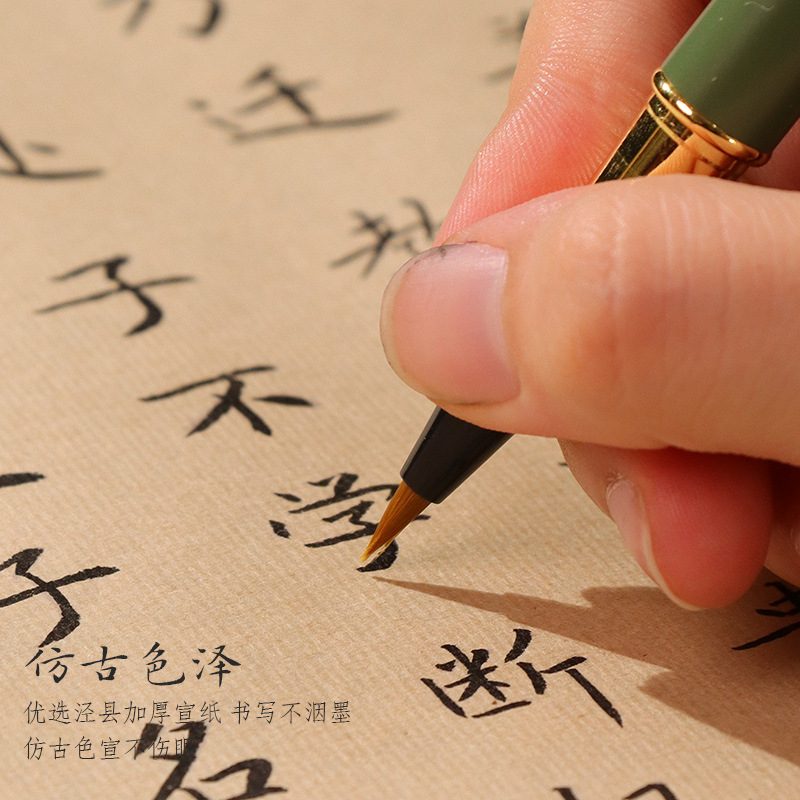 迁
子不学断
子名
仿古色泽
优选泾县加厚宣纸 书写不洇墨
仿古色宣不伤眼